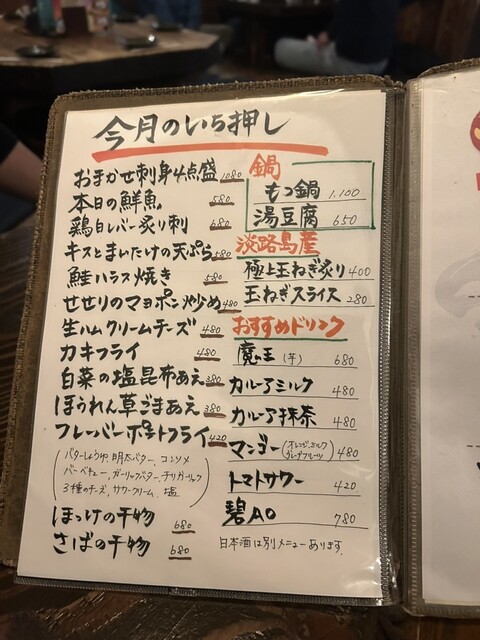 今月のいち押し
おまかせ刺身4点盛 1080
本日の鮮魚 580
鶏白レバー炙り刺 680
キスとまいたけの天ぷら 580
鮭ハラス焼き 580
せせりのマヨポン炒め 480
生ハムクリームチーズ 480
カキフライ 480
白菜の塩昆布あえ 380
ほうれん草ごまあえ 380
フレーバーポテトフライ 420
(バターしょうゆ、明太バター、コンソメ
バーベキュー、ガーリックバター、チリガーリック
3種のチーズ、サワークリーム、塩)
ほっけの干物 680
さばの干物 680
鍋
もつ鍋 1,100
湯豆腐 650
淡路島産
極上玉ねぎ炙り 400
玉ねぎスライス 280
おすすめドリンク
魔王(芋) 680
カルーアミルク 480
カルーア抹茶 480
マンゴー(オレンジ、ミルク
グレープフルーツ) 480
トマトサワー 420
碧Ao 780
日本酒は別メニューあります。